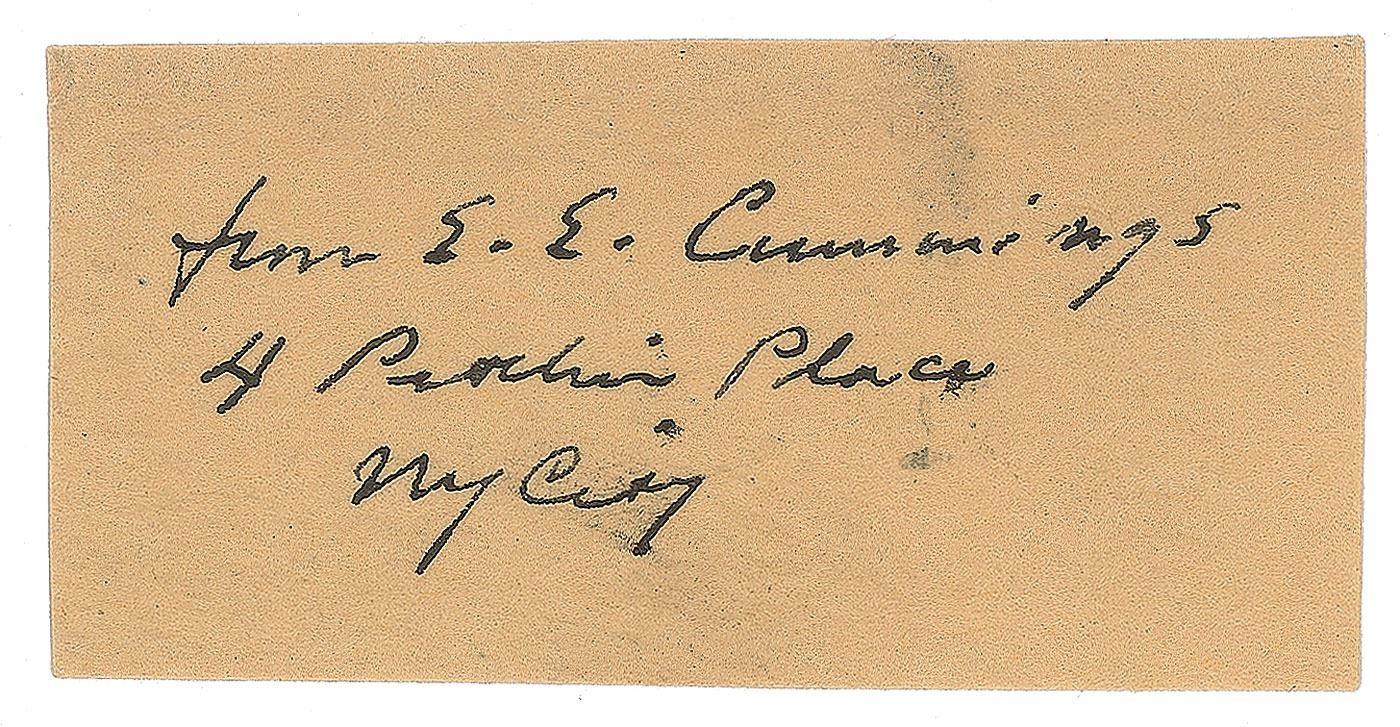 from E. E. Cummings
4 Patchin Place
NY City